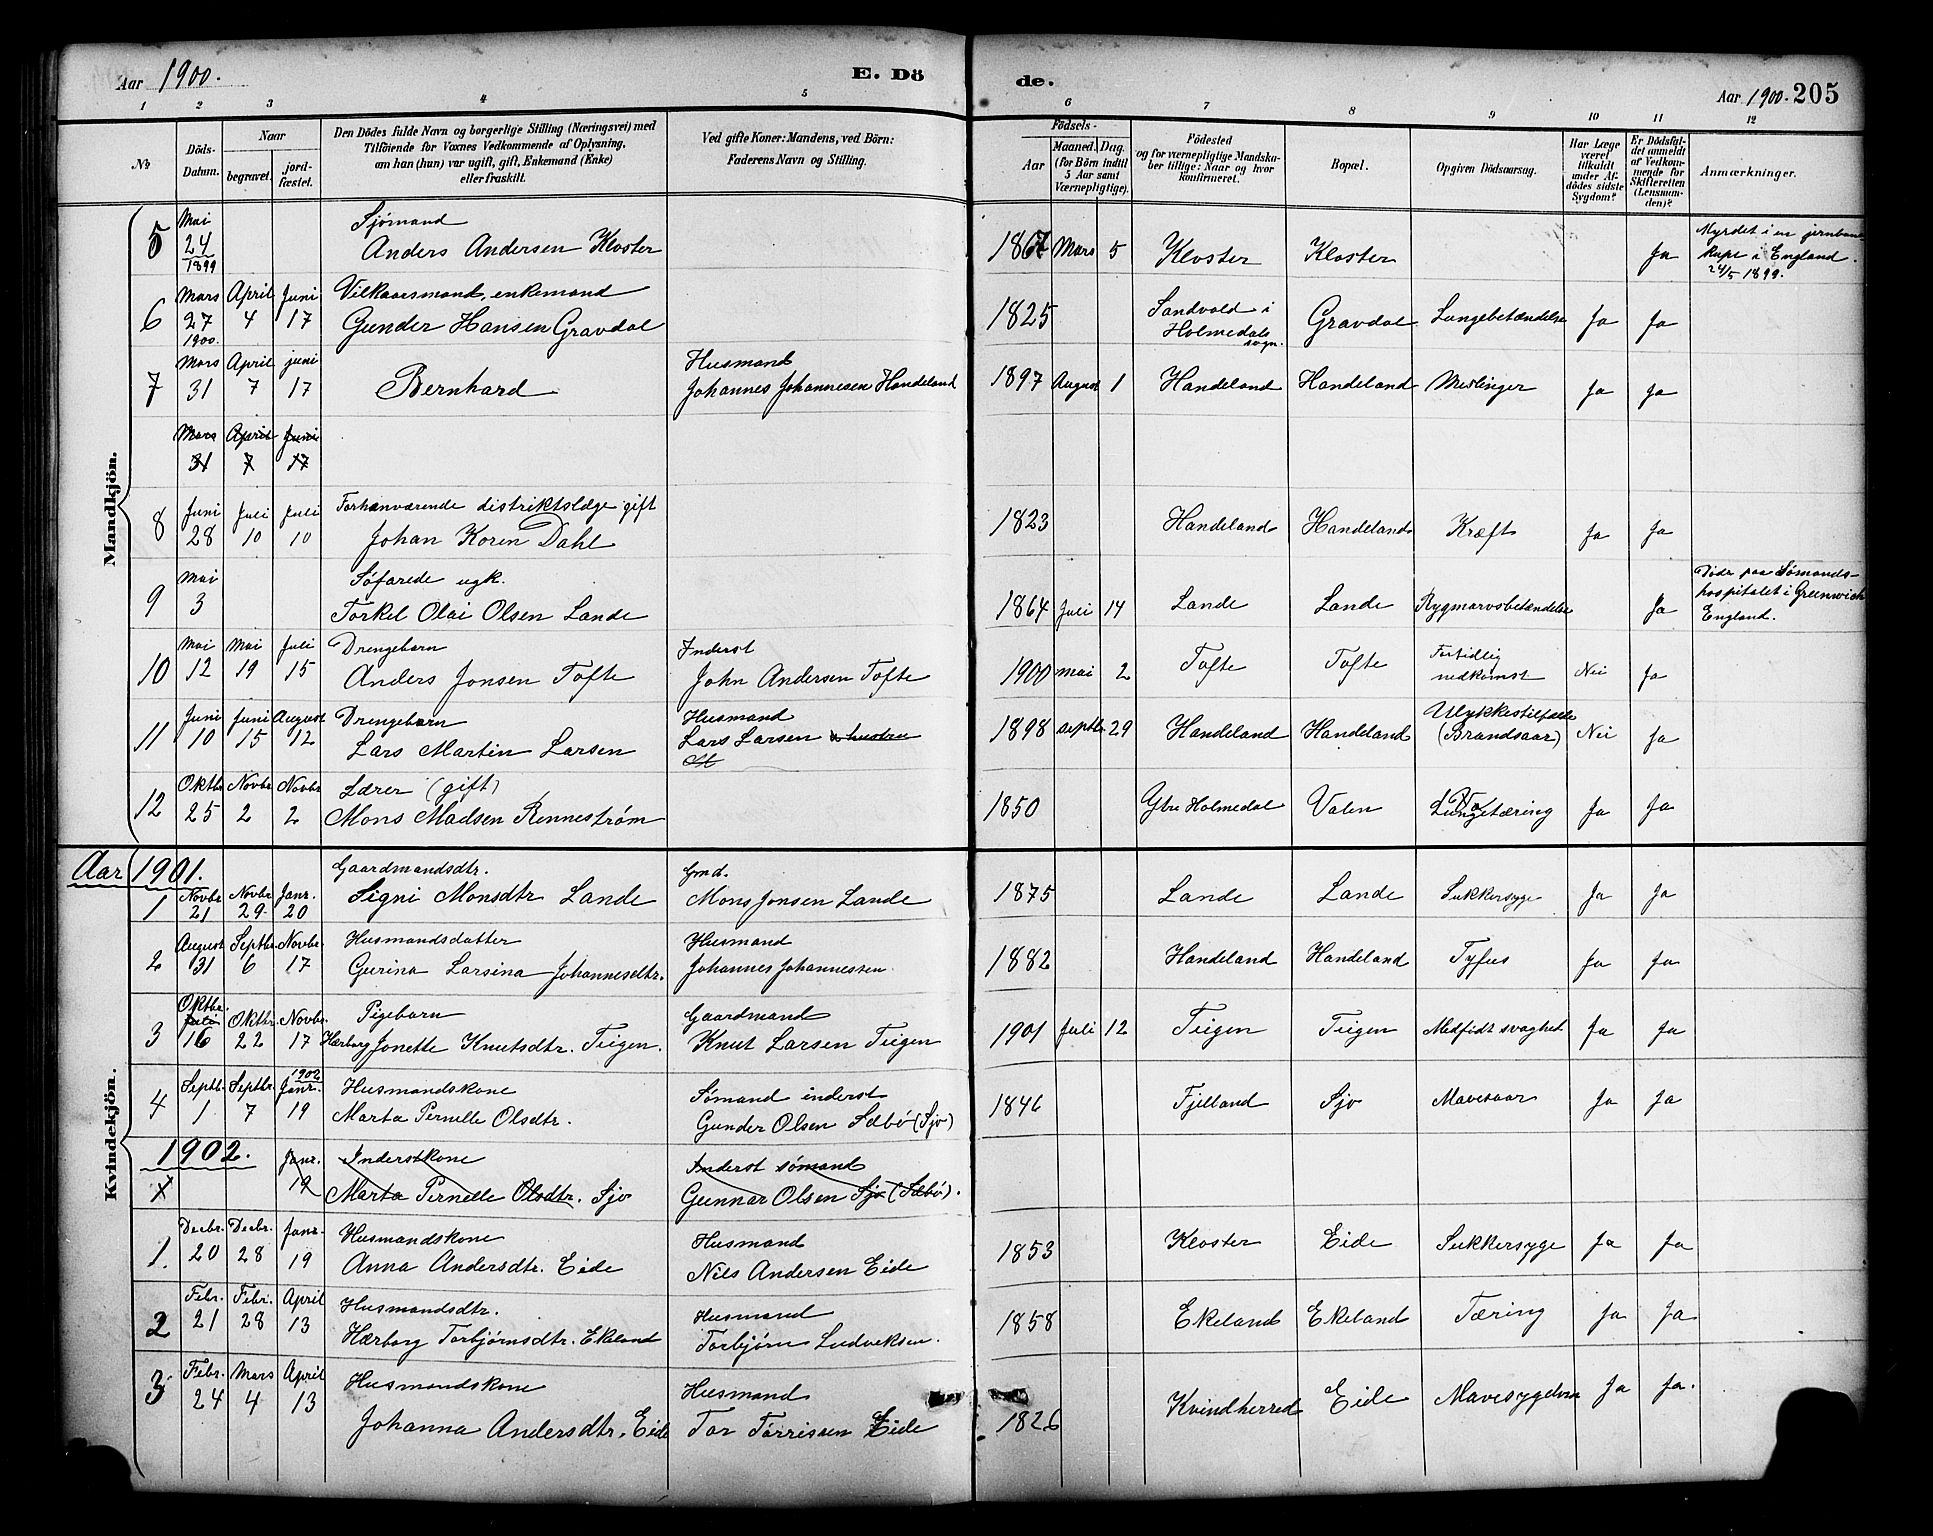 Aar 1900. E. Dö de. Aar 1900. 205
1 2 3 4 5 6 7 8 9 10 11 12
No
Döds-Datum.
Naar
begravet.
jordfæstet.
Den Dödes fulde Navn og borgerlige Stilling (Næringsvei) med
Tilföiende for Voxnes Vedkommende af Oplysning,
om han (hun) var ugift, gift, Enkemand (Enke)
eller fraskilt.
Ved gifte Koner: Mandens, ved Börn:
Faderens Navn og Stilling.
Födsels-
Aar
Maaned. Dag.
(for Börn indtil
5 Aar samt
Værnepligtige).
Födested
og for værnepligtige Mandskaber tillige: Naar og hvor konfirmeret.
Bopæl.
Opgiven Dödsaarsag.
Har Læge været tilkaldt under Afdödes sidste Sygdom?
Er Dödsfaldet anmeldt af Vedkommende for Skifteretten (Lensmanden)?
Anmærkninger.
Mandkjön.
5 Mai 24 1899 Sjømand
Anders Andersen Kloster 1867 Mars 5 Kloster Kloster Ja Myrdet i en jernbane
Kupe i England
24/5 1899.
6 Mars 27 1900. April 4 Juni 17 Vilkaarsmand, enkemand
Gunder Hansen Gravdal 1825 Sandvold i Holmedals sogn. Gravdal Lungebetændelse Ja Ja
7 Mars 31 April 7 juni 17 Bernhard Husmand
Johannes Johannesen Handeland 1897 August 1 Handeland Handeland Meslinger Ja Ja
Mars 31 April 7 Juni 17
8 Juni 28 Juli 10 Juli 10 Forhenværende distriktslæge gift
Johan Koren Dahl 1823 Handeland Handeland Kræft Ja Ja
9 Mai 3 Søfarede ugk.
Torkel Olai Olsen Lande 1864 Juli 14 Lande Lande Rygmarvsbetændelse Ja Døde paa Sømands-
hospitalet i Greenwich
England.
10 Mai 12 Mai 19 Juli 15 Drengebarn
Anders Jonsen Tofte Inderst
John Andersen Tofte 1900 Mai 2 Tofte Tofte Fortidlig nedkomst Nei Ja
11 Juni 10 Juni 15 August 12 Drengebarn
Lars Martin Larsen Husmand
Lars Larsen & hustru 1898 septbr 29 Handeland Handeland Ulykkestilfælde
(Brandsaar) Nei Ja
12 Oktbr 25 Novbr 2 Novbr 2 Lærer (gift)
Mons Madsen Rennestrøm 1850 Ytre Holmedal Valen Lungetæring Ja Ja
Aar 1901.
Kvindekjön.
1 Novbr 21 Novbr 29 Janr. 20 Gaardmandsdtr.
Signi Monsdtr Lande Gmd.
Mons Jonsen Lande 1875 Lande Lande Sukkersyge Ja Ja
2 August 31 Septbr 6 Novbr. 17 Husmandsdatter
Gurina Larsina Johannesdtr. Husmand
Johannes Johannessen 1882 Handeland Handeland Tyfus Ja Ja
3 Oktbr. Juli 16 Oktbr 22 Novbr. 17 Pigebarn
Hærborg Jonette Knutsdtr. Teigen. Gaardmand
Knut Larsen Teigen 1901 Juli 12 Teigen Teigen Medfødt svaghed Ja Ja
4 Septb. 1 Septbr. 7 1902 Janr. 19 Husmandskone
Marta Pernelle Olsdtr. Sømand inderst
Gunder Olsen Sæbø (Sjo) 1846 Fjelland Sjo Mavesaar Ja Ja
1902.
Janr. 19 Inderstkone
Marta Pernelle Olsdtr. Sjo Inderst sømand
Gunnar Olsen Sjo (Sæbø).
1. Decbr. 20 Decbr. 28 Janr. 19 Husmandskone
Anna Andersdtr. Eide Husmand
Nils Andersen Eide 1853 Kloster Eide Sukkersyge Ja Ja
2 Febr. 21 Febr. 28 April 13 Husmandsdtr.
Hærborg Torbjørnsdtr. Ekeland Husmand
Torbjørn Ludveksen. 1858 Ekeland Ekeland Tæring Ja Ja
3 Febr. 24 Mars 4 April 13 Husmandskone
Johanna Andersdtr. Eide Husmand
Tor Torrissen Eide 1826 Kvindherred Eide Mavesygdom Ja Ja.